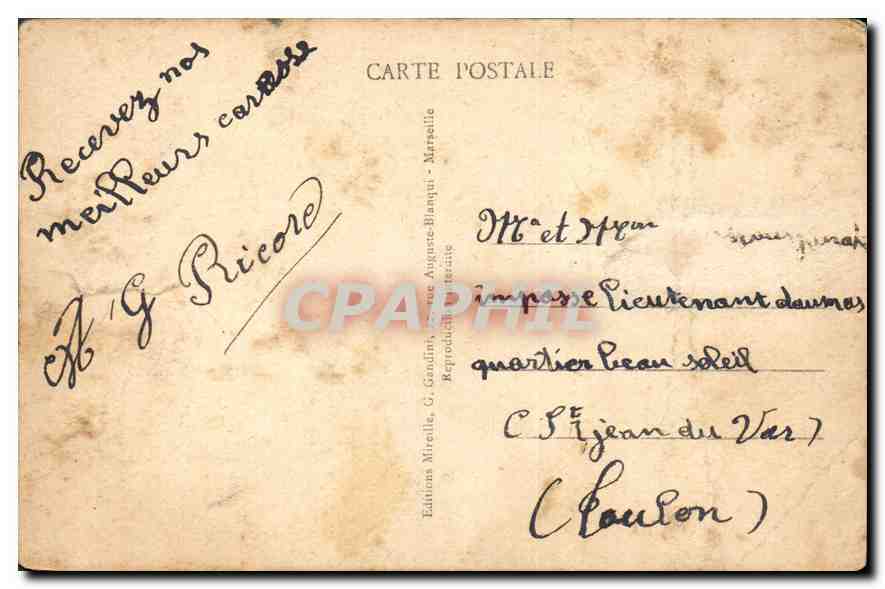 CARTE POSTALE
Recevez nos
meilleurs caresse
A G Ricord
Editions Mireille, G. Gandini, rue Auguste-Blanqui - Marseille
Reproduction interdite
CPAPHIL
et
impasse lieutenant daumas
quartier beau soleil
C StE jean du Var)
(Toulon)